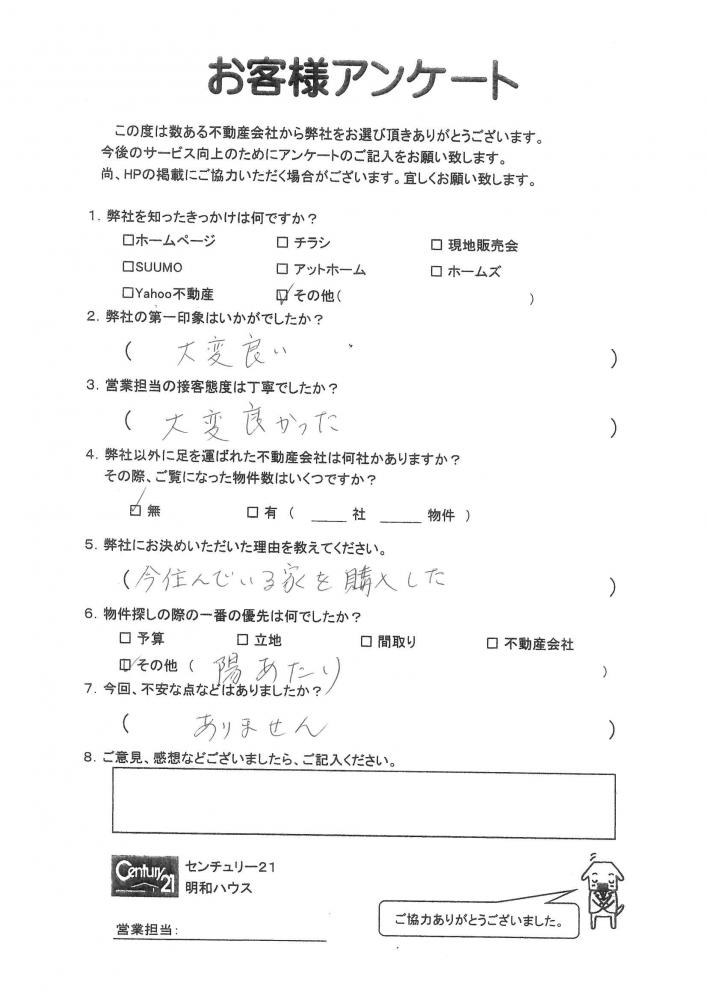 お客様アンケート
この度は数ある不動産会社から弊社をお選び頂きありがとうございます。
今後のサービス向上のためにアンケートのご記入をお願い致します。
尚、HPの掲載にご協力いただく場合がございます。宜しくお願い致します。
1. 弊社を知ったきっかけは何ですか？
□ホームページ □ チラシ □ 現地販売会
□SUUMO □ アットホーム □ ホームズ
□Yahoo不動産 ☑ その他( )
2. 弊社の第一印象はいかがでしたか？
( 大変良い )
3. 営業担当の接客態度は丁寧でしたか？
( 大変良かった )
4. 弊社以外に足を運ばれた不動産会社は何社かありますか？
その際、ご覧になった物件数はいくつですか？
☑ 無 □ 有 ( ____ 社 ____ 物件 )
5. 弊社にお決めいただいた理由を教えてください。
(今住んでいる家を購入した )
6. 物件探しの際の一番の優先は何でしたか？
□ 予算 □ 立地 □ 間取り □ 不動産会社
☑その他 ( 陽あたり )
7. 今回、不安な点などはありましたか？
( ありません )
8. ご意見、感想などございましたら、ご記入ください。
Century 21
センチュリー21
明和ハウス
営業担当：
ご協力ありがとうございました。